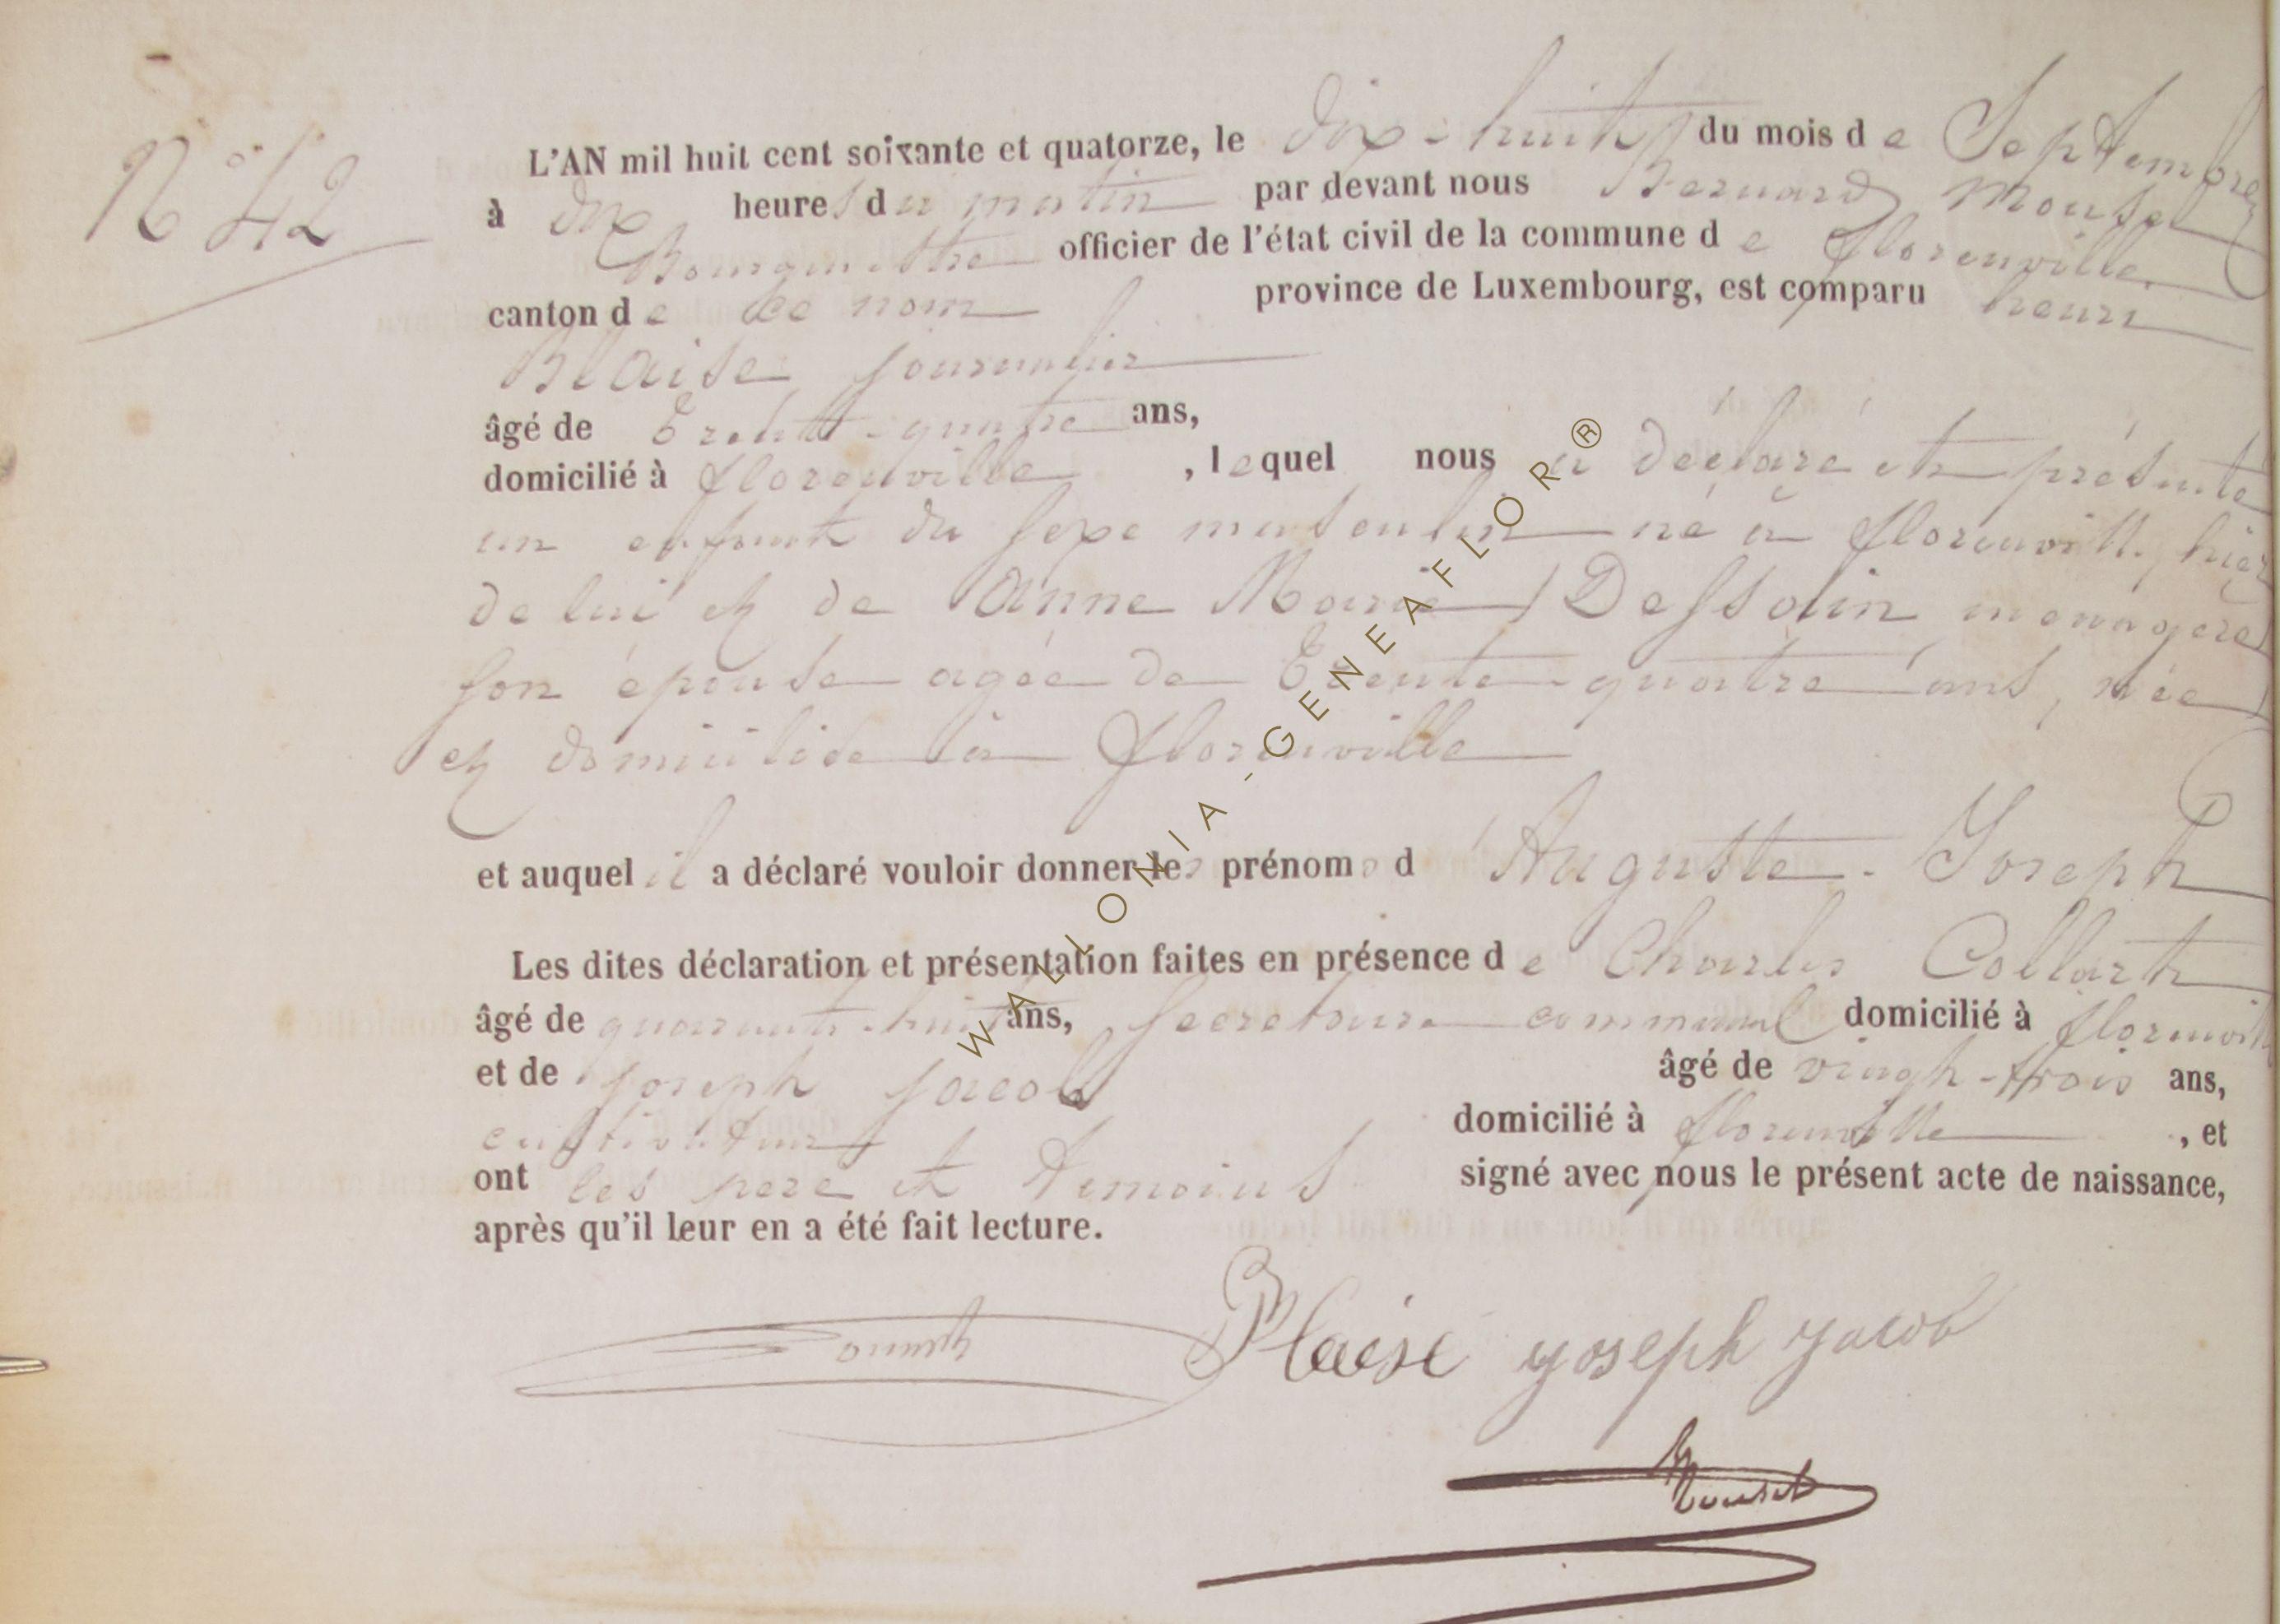 N° 42
L'AN mil huit cent soixante et quatorze, le dix-huit du mois de Septembre
à dix heures du matin par devant nous Bernard Mousel
Bourgmestre officier de l'état civil de la commune de florenville
canton de ce nom province de Luxembourg, est comparu henri
Blaise journalier
âgé de trente-quatre ans,
domicilié à florenville, lequel nous a déclaré et présenté
un enfant du sexe masculin né à florenville, hier
de lui et de Anne Marie Dessoin menagère
son épouse agée de trente-quatre ans, née
et domiciliée à florenville
et auquel il a déclaré vouloir donner les prénoms d'Auguste-Joseph
Les dites déclaration et présentation faites en présence de Charles Collart
âgé de quarante-huit ans, secretaire communal domicilié à florenville
et de joseph jacob âgé de vingt-trois ans,
cultivateur domicilié à florenville, et
ont les père et temoins signé avec nous le présent acte de naissance,
après qu'il leur en a été fait lecture.
Blaise joseph jacob
Mousel
WALLONIA-GENEAFLOR®